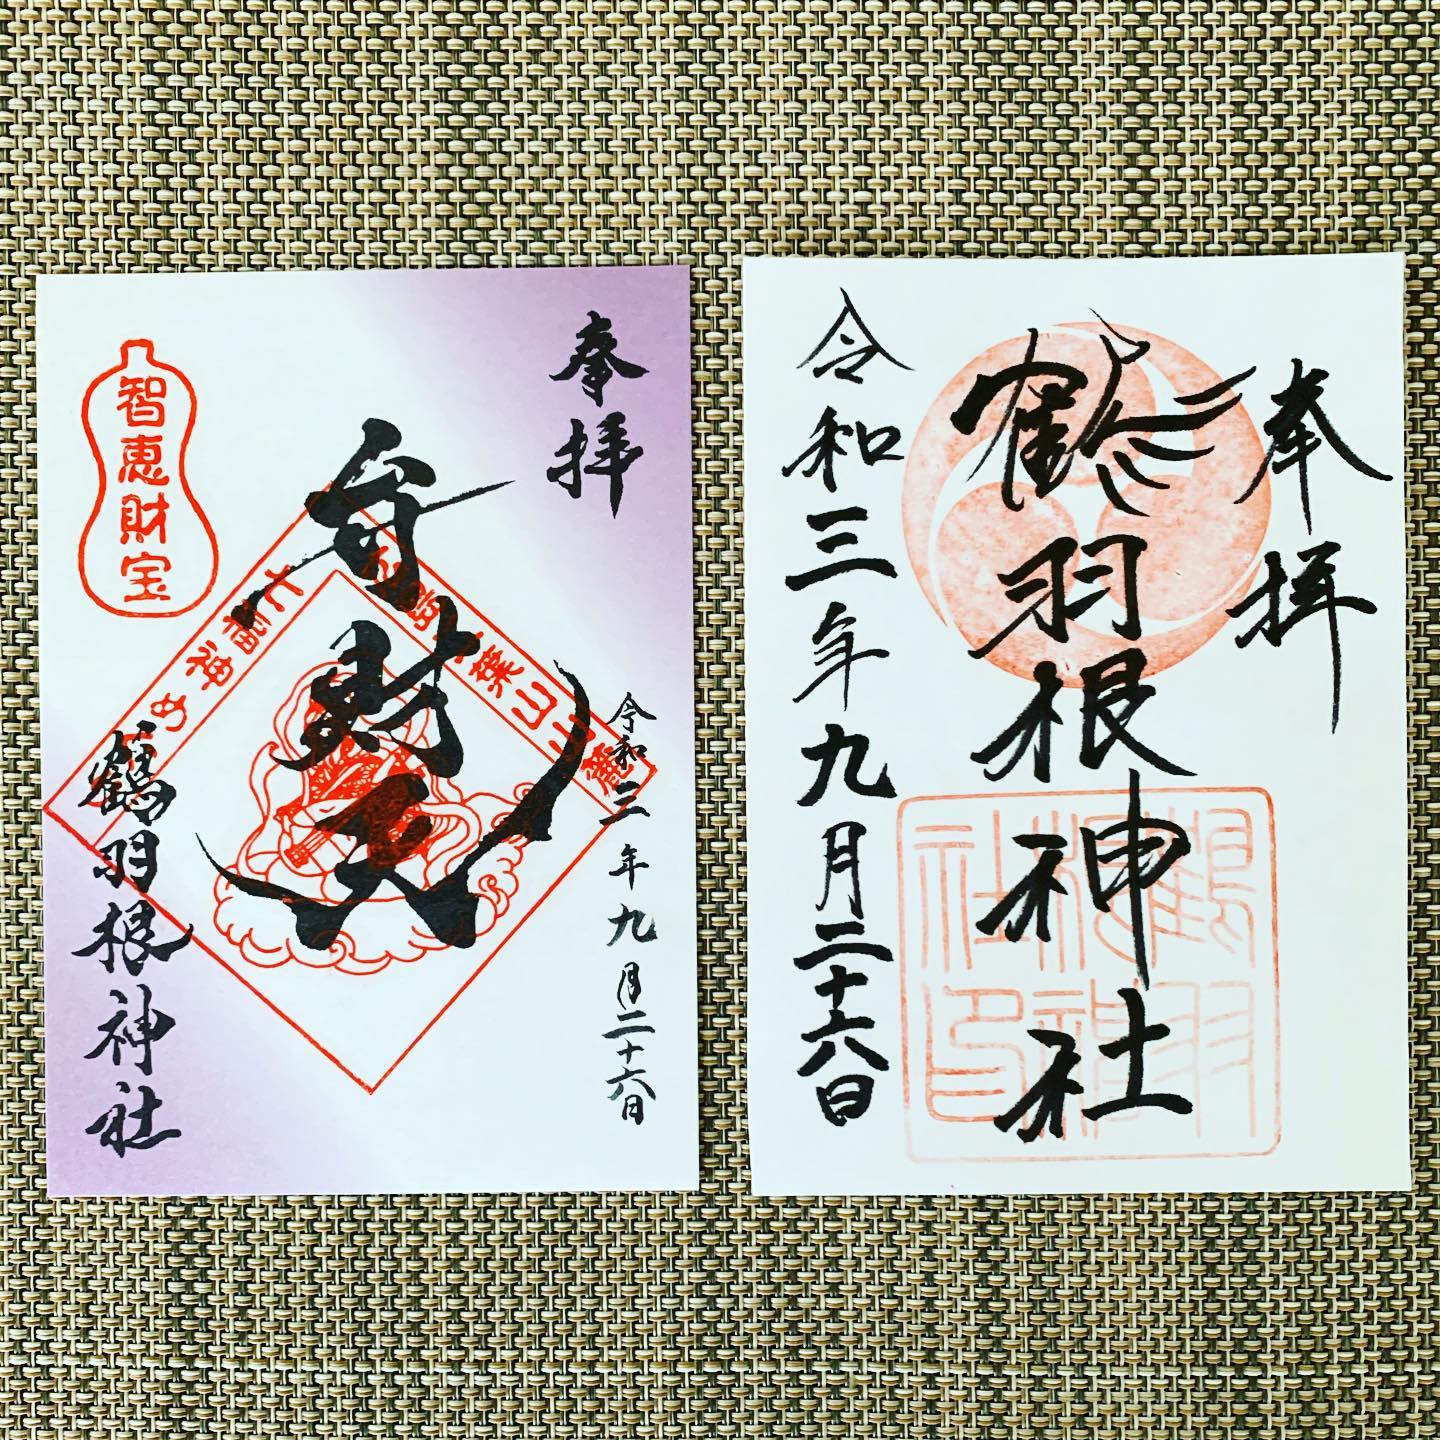 奉拝
弁財天
智恵財宝
七福神め
葉山
令和三年九月二十六日
鶴羽根神社
奉拝
鶴羽根神社
令和三年九月二十六日
鶴羽根神社印